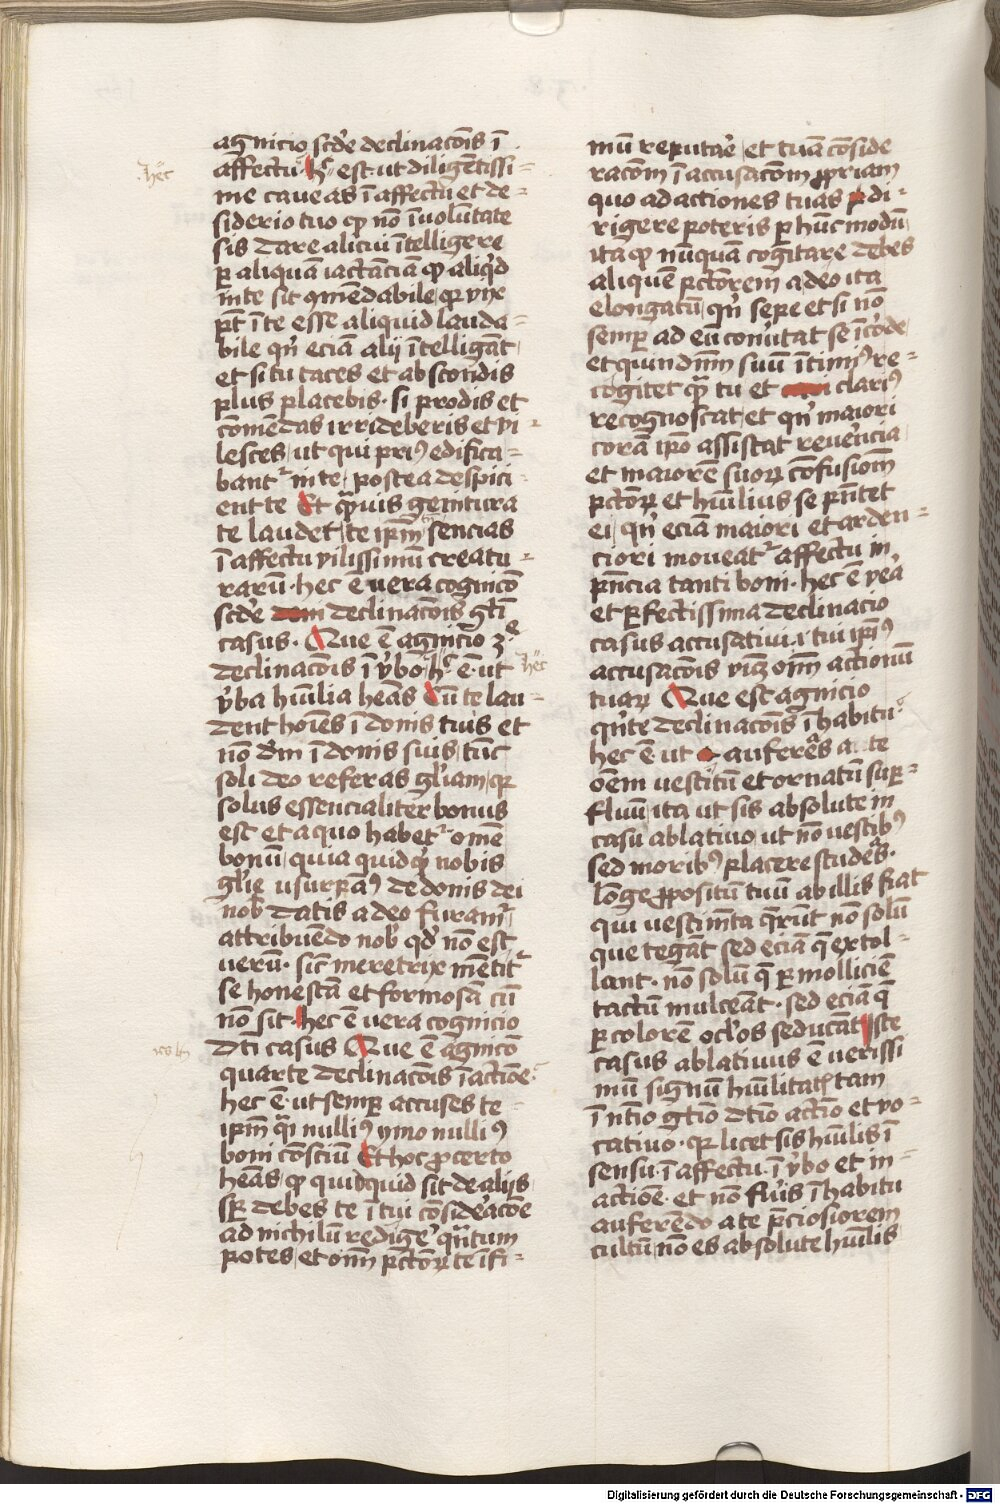 agnicio scd'e declinacōis ī
affectu h͛ est ut diligētissi-
me caueas ī affectu et de-
siderio tuo qꝫ nō ī uolūtate
sis dare alicui ītelligere
ꝑ aliquā iactāciā qꝫ aliq'd
in te sit 9mēdabile
p̄t ī te esse aliquid lauda-
bile qn̄ eciā alij ītelligāt
et si tu taces et abscondis
plus placebis. si prodis et
cōmēdas irrideberis et vi-
lesces, ut qui pri9 edifica-
bant᷑ in te, postea despici-
ent te Et qͣuis genitura
te laudet, te ip̄m sencias
ī affectu vilissimū creatu-
rarū. hec ē uera cognicō
scd'e declinacōis gti
casus. Que ē agnicio 3ͤ
declinacōis ī v̓bo h͛ ē. ut
v̓ba hūilia heās Cū te lau-
dent hoīes ī donis tuis et
nō dm̄ ī donis suis, tūc
soli deo referas gl'iam, qꝛ
solus essencialiter bonus
est et a quo habet᷑ omē
bonū, quia quidqd' nobis
gl'ie usurpam9 de donis dei
nob' datis adeo furam᷑
attribuēdo nob' qd' nō est
uerū. sic̄ meretrix mētit᷑
se honestā et formosā cū
nō sit. hec ē uera cognicio
dti casus Que ē agnicō
quarte declinacōis ī actiōe.
hec ē. ut semꝑ accuses te
ip̄m qͣi nulli9 ymo nulli9
boni cōsciū Et hoc ꝓ certo
heās, qꝫ quidquid sit de alijs
sꝑ debes te ī tui cōsid'acōe
ad nichilū redige' qn̄tum
potes, et om̄ pctōrꝫ te īfi-
mū reputa'e, et tuā cōside
racōm ī accusacōm ꝓpriam
quo ad actiones tuas di-
rigere poteris ꝑ hūc modū,
ita qꝫ nūquā cogitare debes
aliquē pctorem adeo ita
elongatū, qn̄ sepe et si nō
semꝑ ad eū conu'tat se ī cōde
et quin dn̄m suū ītimi9 re-
cogitet qͣ tu et clari9
recognoscat, et qn̄ maiori
corā ip̄o assistat reue'ncia
et maiorē suorꝫ cōfusiom
pctorꝫ et hūilius se pn̄tet
ei, qn̄ eciā maiori et arden-
ciori moueat᷑ affectu in
pn̄cia tanti boni. hec ē vera
et ꝑfectissima declinacio
casus accusatiui .i. tui ip̄i9
accusacōis om̄ actionū
tuarꝫ Que est agnicio
qn̄te declinacōis ī habitu.
hec ē. ut auferas a te
oēm uestitū et ornatū suꝑ-
fluū, ita ut sis absolute in
casu ablatiuo, ut nō uestib9
sed morib9 placere studeas.
Lōge ꝓpositū tuū ab illis fiat
qui uestimta q̄rūt nō solū
que tegāt sed eciā q̄ extol-
lant. nō solū q̄ ꝑ molliciē
tactū mulceāt. sed eciā q̄
ꝑ colorē oclos seducāt Iste
casus ablatiuus ē uerissi
mū signū hūilitatꝭ tam
ī ntīo gtīo dtīo actīo et vo-
catiuo. qꝛ licet sis hūilis ī
sensu. ī affectu. ī v̓bo et in-
actiōe. et nō fu'is ī habitu
auferēdo a te p̄ciosiorem
cultū, nō es absolute hūilis
hec
hec
Digitalisierung gefördert durch die Deutsche Forschungsgemeinschaft - DFG